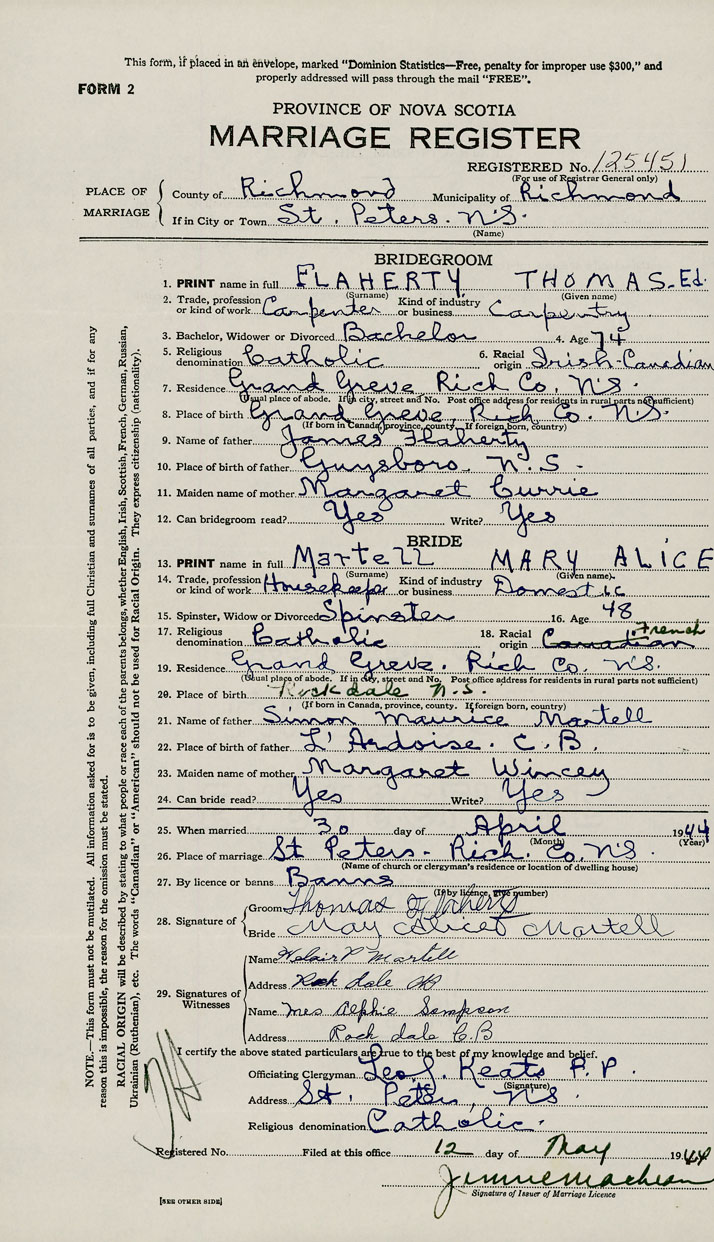 This form, if placed in an envelope, marked "Dominion Statistics—Free, penalty for improper use $300," and
properly addressed will pass through the mail "FREE".
FORM 2
PROVINCE OF NOVA SCOTIA
MARRIAGE REGISTER
REGISTERED No. 125451
(For use of Registrar General only)
PLACE OF MARRIAGE
County of Richmond Municipality of Richmond
If in City or Town St. Peters. N.S.
(Name)
BRIDEGROOM
1. PRINT name in full FLAHERTY THOMAS. Ed.
(Surname) (Given name)
2. Trade, profession or kind of work Carpenter Kind of industry or business Carpentry
3. Bachelor, Widower or Divorced Bachelor 4. Age 74
5. Religious denomination Catholic 6. Racial origin Irish-Canadian
7. Residence Grand Greve, Rich Co. N.S.
(Usual place of abode. If in city, street and No. Post office address for residents in rural parts not sufficient)
8. Place of birth Grand Greve, Rich Co. N.S.
(If born in Canada, province, county. If foreign born, country)
9. Name of father James Flaherty
10. Place of birth of father Guysboro, N.S.
11. Maiden name of mother Margaret Currie
12. Can bridegroom read? Yes Write? Yes
BRIDE
13. PRINT name in full Martell MARY ALICE
(Surname) (Given name)
14. Trade, profession or kind of work Housekeeper Kind of industry or business Domestic
15. Spinster, Widow or Divorced Spinster 16. Age 48
17. Religious denomination Catholic 18. Racial origin Canadian French
19. Residence Grand Greve. Rich Co. N.S.
(Usual place of abode. If in city, street and No. Post office address for residents in rural parts not sufficient)
20. Place of birth Rockdale N.S.
(If born in Canada, province, county. If foreign born, country)
21. Name of father Simon Maurice Martell
22. Place of birth of father L'Ardoise. C.B.
23. Maiden name of mother Margaret Wincey
24. Can bride read? Yes Write? Yes
25. When married 30 day of April 1944
(Month) (Year)
26. Place of marriage St Peters- Rich. Co. N.S.
(Name of church or clergyman's residence or location of dwelling house)
27. By licence or banns Banns
(If by licence, give number)
28. Signature of
Groom Thomas Flaherty
Bride May Alice Martell
29. Signatures of Witnesses
Name P Martell
Address Rock dale CB
Name Mrs Alphie Sampson
Address Rock dale C.B
I certify the above stated particulars are true to the best of my knowledge and belief.
Officiating Clergyman Leo J. Keats P.P.
(Signature)
Address St. Peters, N.S.
Religious denomination Catholic.
Registered No. Filed at this office 12 day of May 1944
Signature of Issuer of Marriage Licence
[SEE OTHER SIDE]
NOTE.—This form must not be mutilated. All information asked for is to be given, including full Christian and surnames of all parties, and if for any
reason this is impossible, the reason for the omission must be stated.
RACIAL ORIGIN will be described by stating to what people or race each of the parents belongs, whether English, Irish, Scottish, French, German, Russian,
Ukrainian (Ruthenian), etc. The words "Canadian" or "American" should not be used for Racial Origin. They express citizenship (nationality).